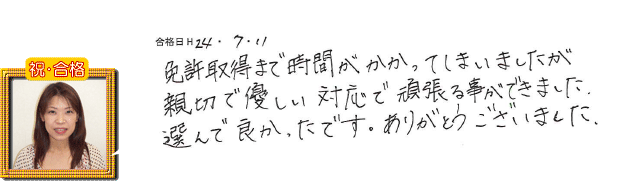 合格日 H 24・7・11
祝・合格
免許取得まで時間がかかってしまいましたが
親切で優しい対応で頑張る事ができました.
選んで良かったです。ありがとうございました.